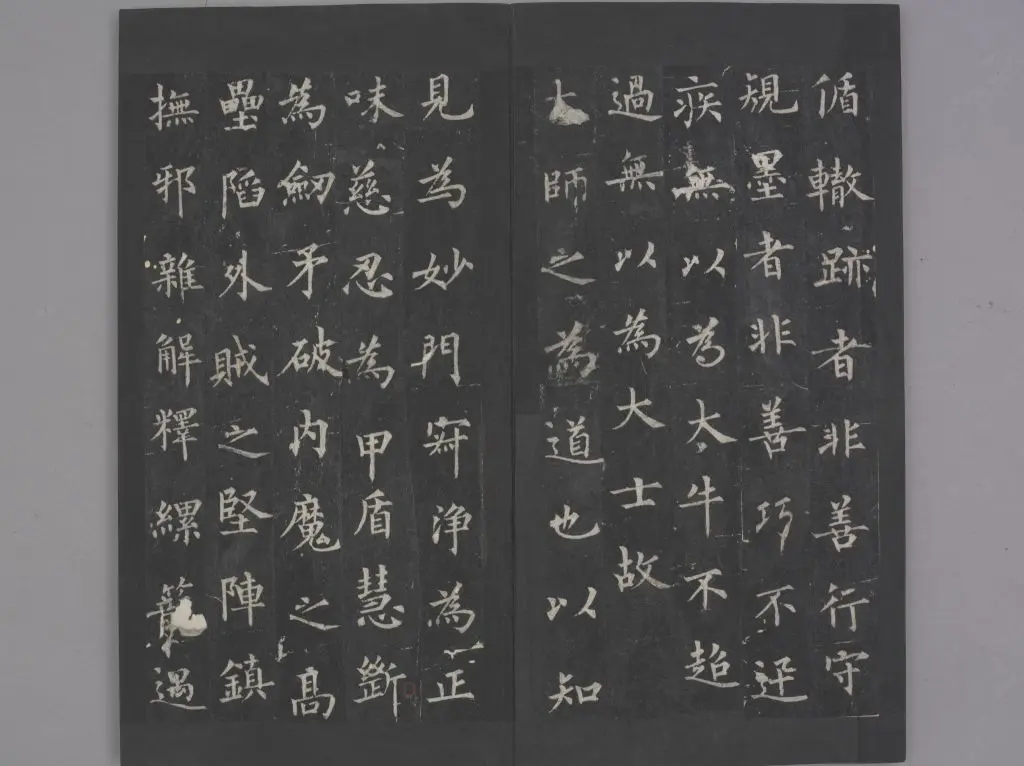 偱轍跡者非善行守
䂓墨者非善巧不迅
疾無以為大牛不超
過無以為大士故
大師之為道也以知
見為妙門寂淨為正
味慈忍為甲盾慧斷
為劒矛破内魔之高
壘陷外賊之堅陣鎮
撫邪雜解釋縲籠遇